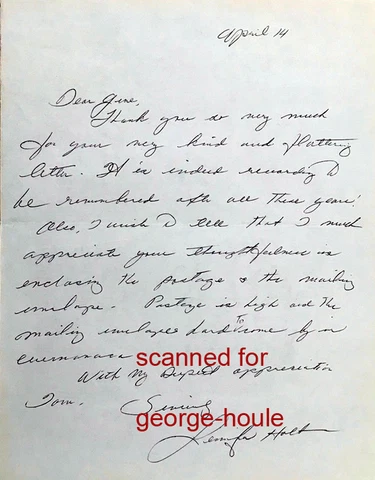 April 14
Dear Gene,
Thank you so very much
for your very kind and flattering
letter. It is indeed rewarding to
be remembered after all these years!
Also, I wish to tell that I much
appreciate your thoughtfulness in
enclosing the postage & the mailing
envelope. Postage is high and the
mailing envelopes hard to come by in
Cuernavaca
scanned for
With my deepest appreciation
Tom. Sincerely
george-houle
Jennifer Holt